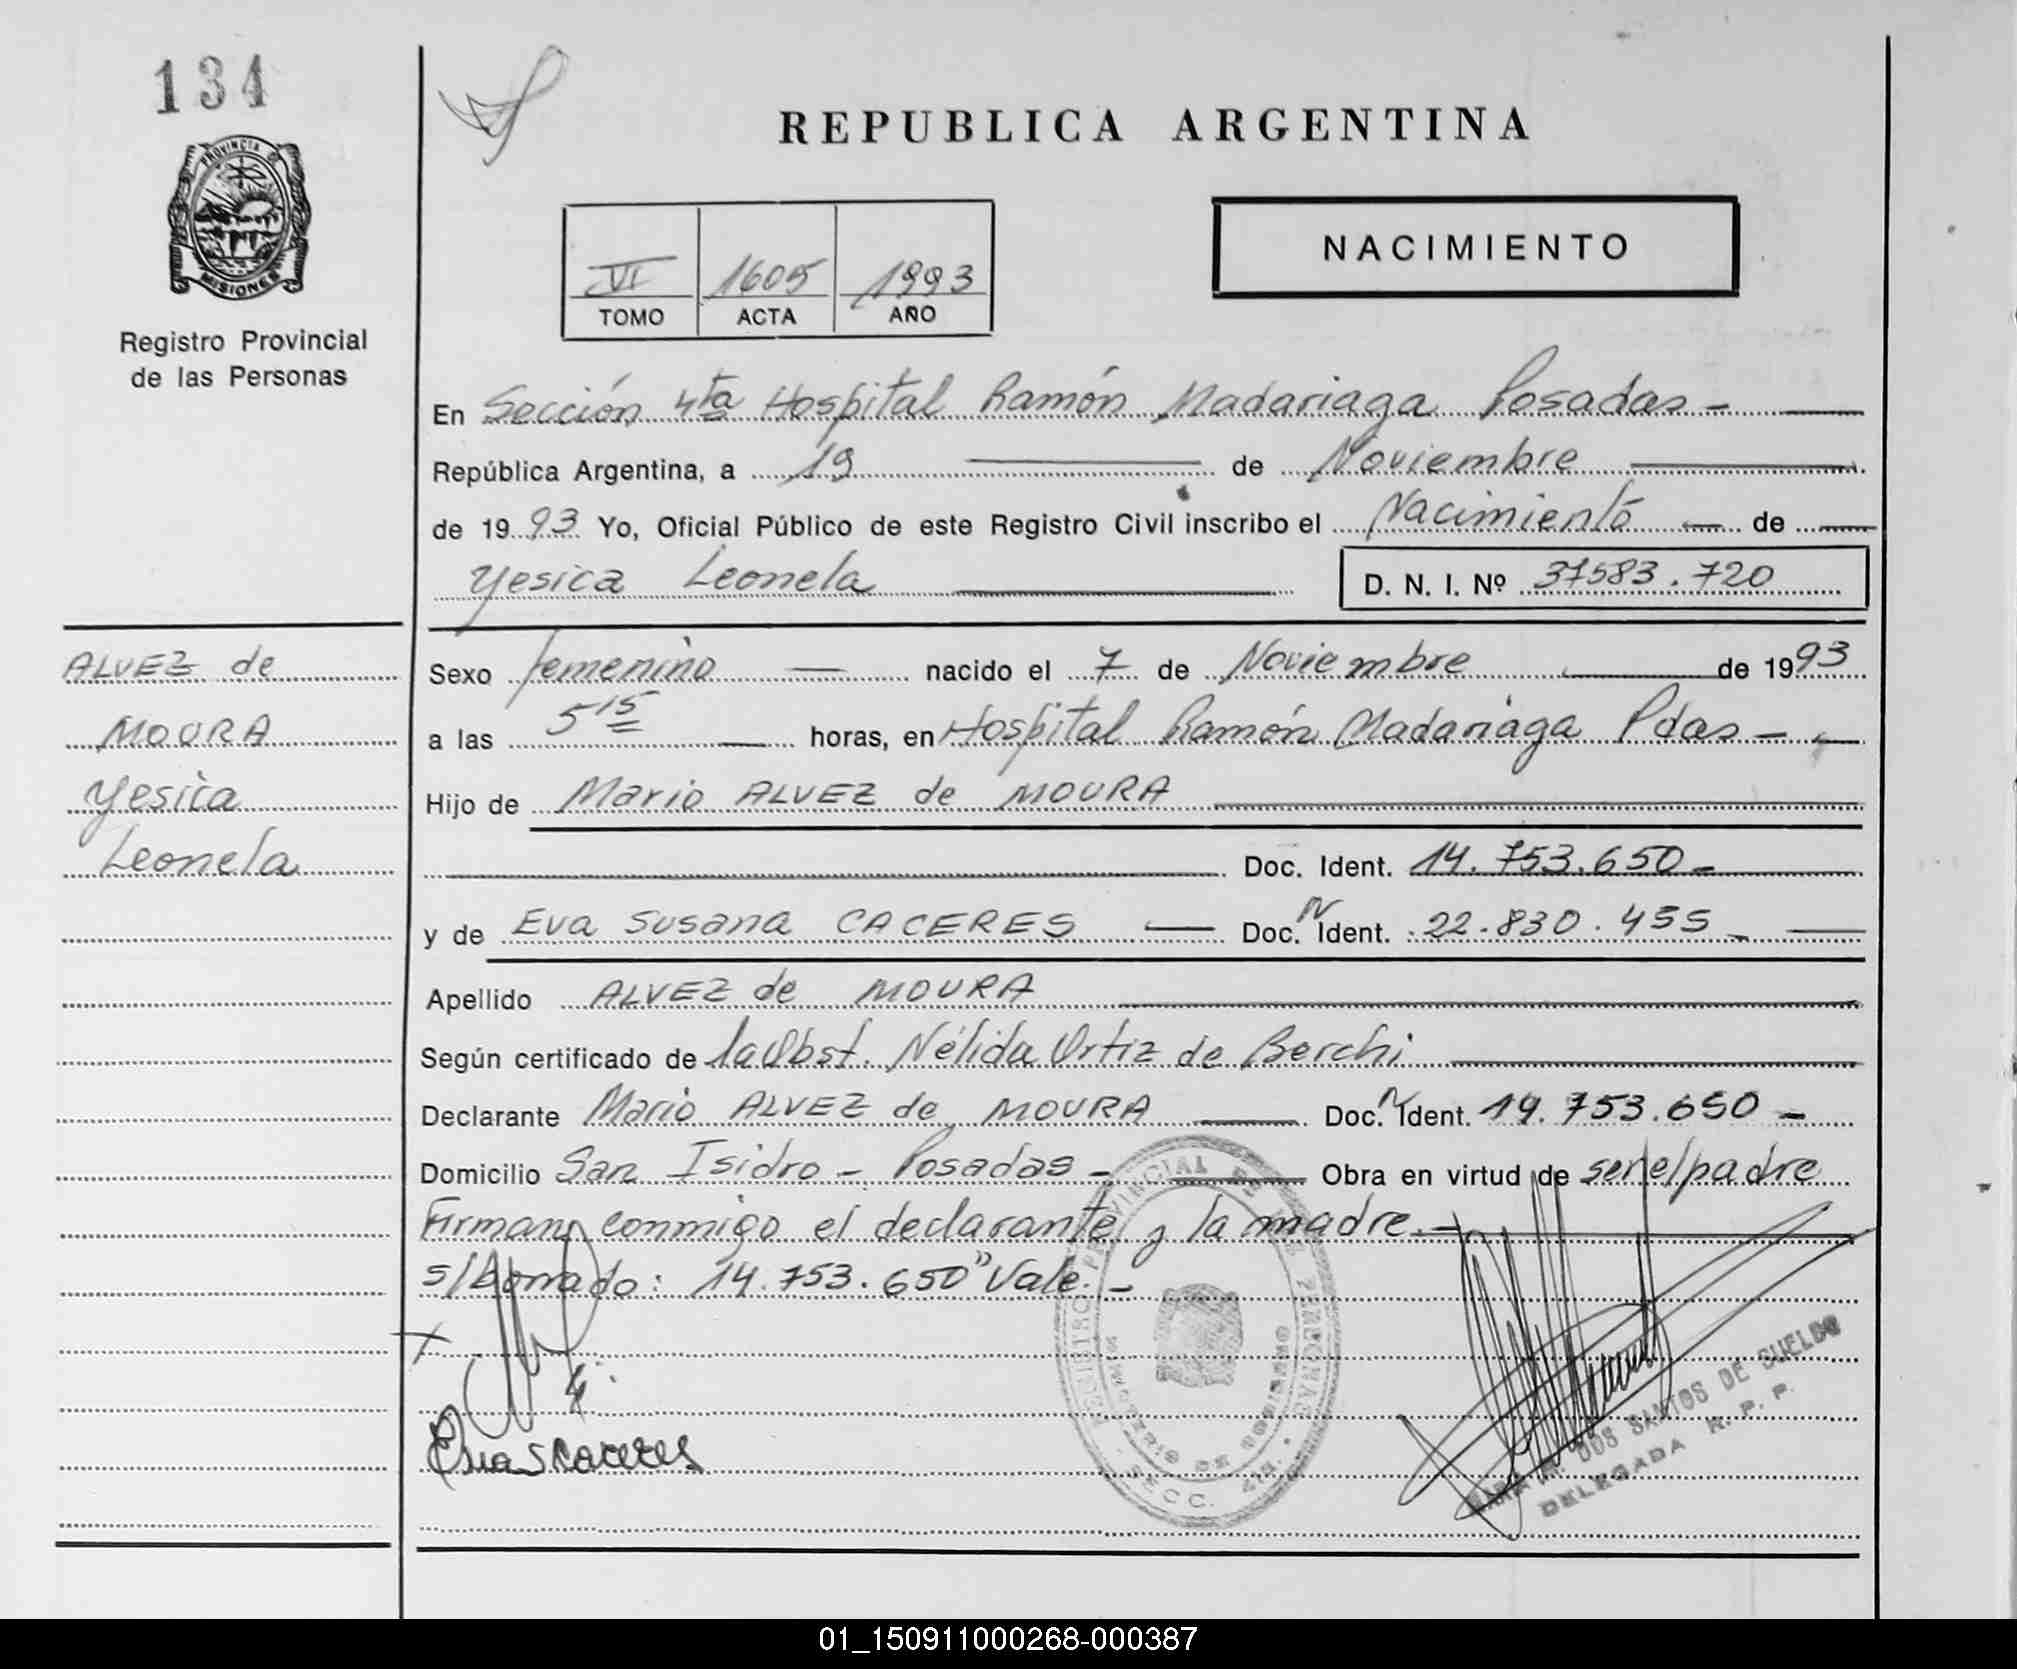 134
PROVINCIA DE
MISIONES
Registro Provincial
de las Personas
REPUBLICA ARGENTINA
VI 1605 1993
TOMO ACTA AÑO
NACIMIENTO
En Sección 4ta Hospital Ramón Madariaga Posadas -
República Argentina, a 19 de Noviembre
de 1993 Yo, Oficial Público de este Registro Civil inscribo el Nacimiento de
Yesica Leonela D. N. I. Nº 37583.720
ALVEZ de
MOURA
Yesica
Leonela
Sexo femenino nacido el 7 de Noviembre de 1993
a las 5 15 horas, en Hospital Ramón Madariaga Pdas -
Hijo de Mario ALVEZ de MOURA
Doc. Ident. 14.753.650 -
y de Eva Susana CACERES Doc. N Ident. 22.830.455 -
Apellido ALVEZ de MOURA
Según certificado de la Obst. Nélida Ortiz de Berchi
Declarante Mario ALVEZ de MOURA Doc. N Ident. 14.753.650 -
Domicilio San Isidro - Posadas - Obra en virtud de ser el padre
Firman conmigo el declarante y la madre. -
s/borrado: 14.753.650" Vale. -
Eva S Caceres
REGISTRO PROVINCIAL DE LAS PERSONAS
MINISTERIO DE GOBIERNO
SECC. 4ta.
DOS SANTOS DE SUELDO
DELEGADA R. P. P.
01_150911000268-000387